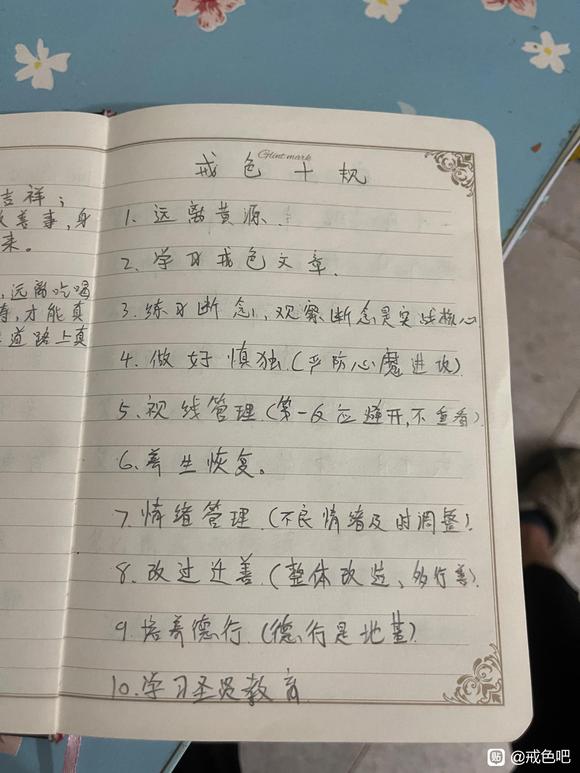 吉祥；
善事，身
来。
远离吃喝
，才能真
道路上真
Glint mark
戒色十规
1. 远离黄源.
2. 学习戒色文章.
3. 练习断念，观察断念是实战核心
4. 做好慎独(严防心魔进攻)
5. 视线管理(第一反应避开,不查看)
6. 养生恢复。
7. 情绪管理.(不良情绪及时调整).
8. 改过迁善.(整体改造、多行善).
9. 培养德行.(德行是地基).
10. 学习圣贤教育
贴 @戒色吧